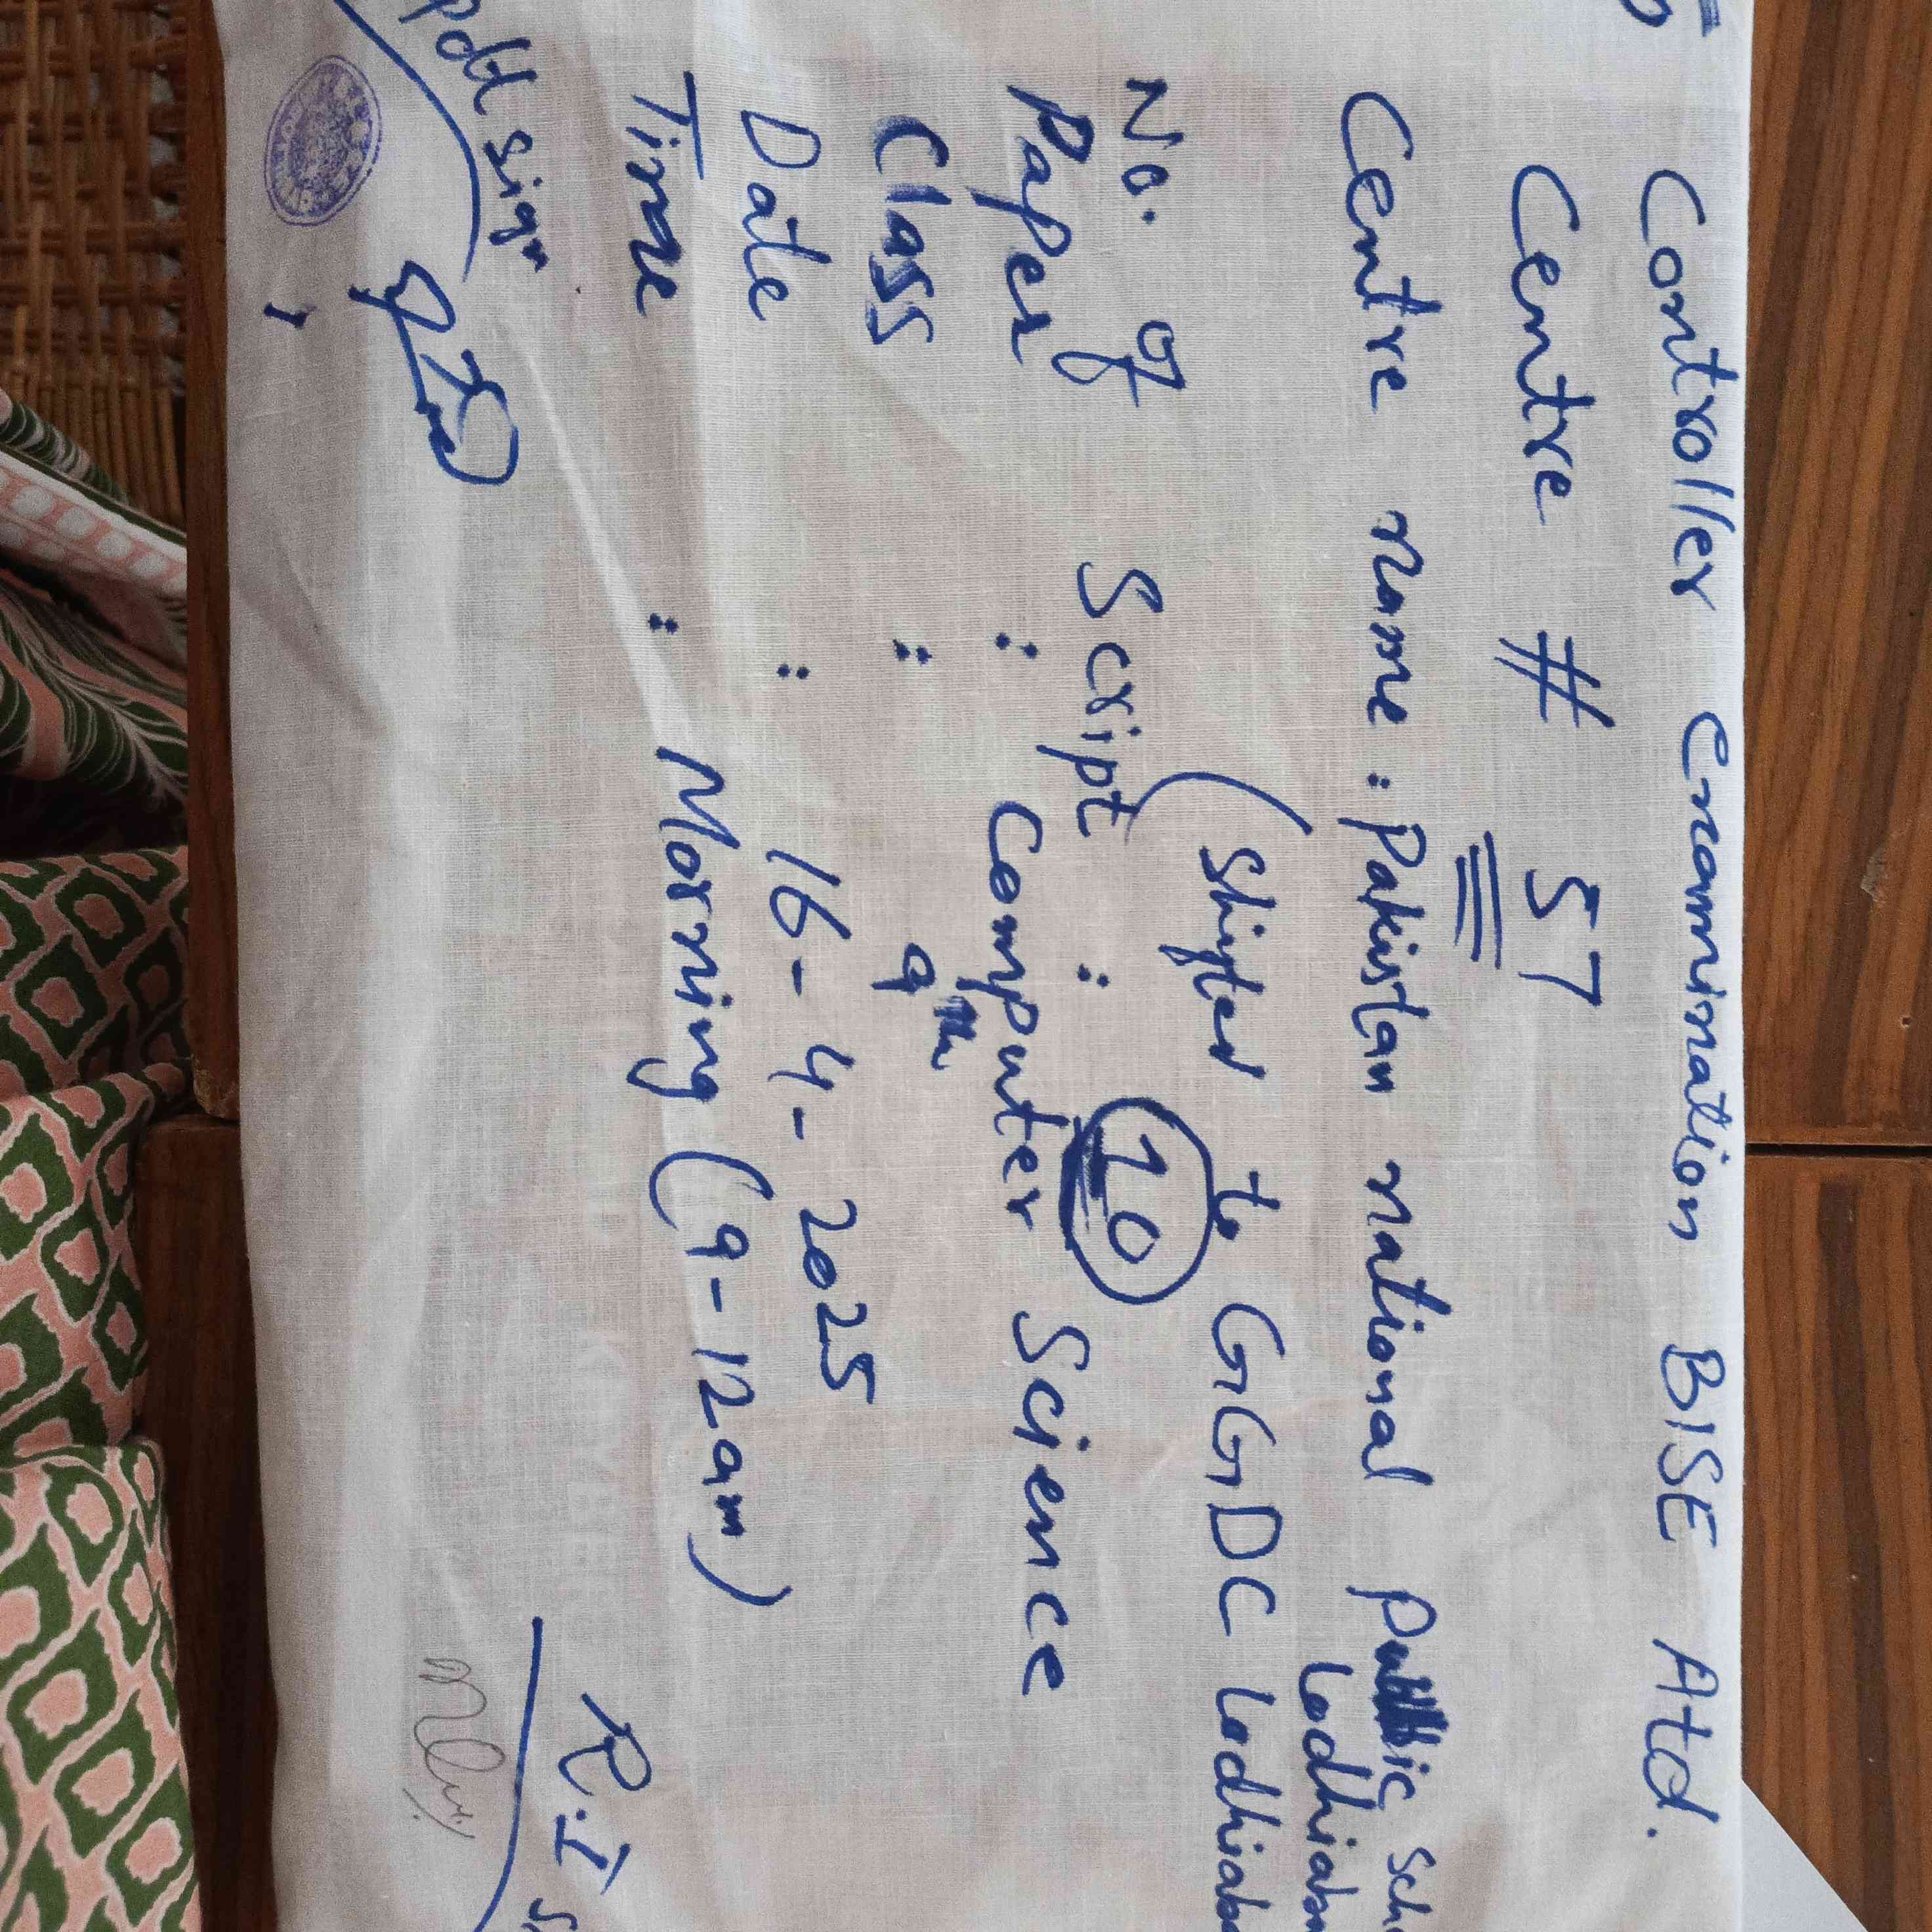 Controller Examination BISE Atd.
Centre # 57
Centre name : Pakistan national Public Sch
Lodhiab
(Shifted to GGDC Lodhiab
No. of Script : 10
Paper : Computer Science
Class : 9th
Date : 16-4-2025
Time : Morning (9-12am)
pdt sign
R.I